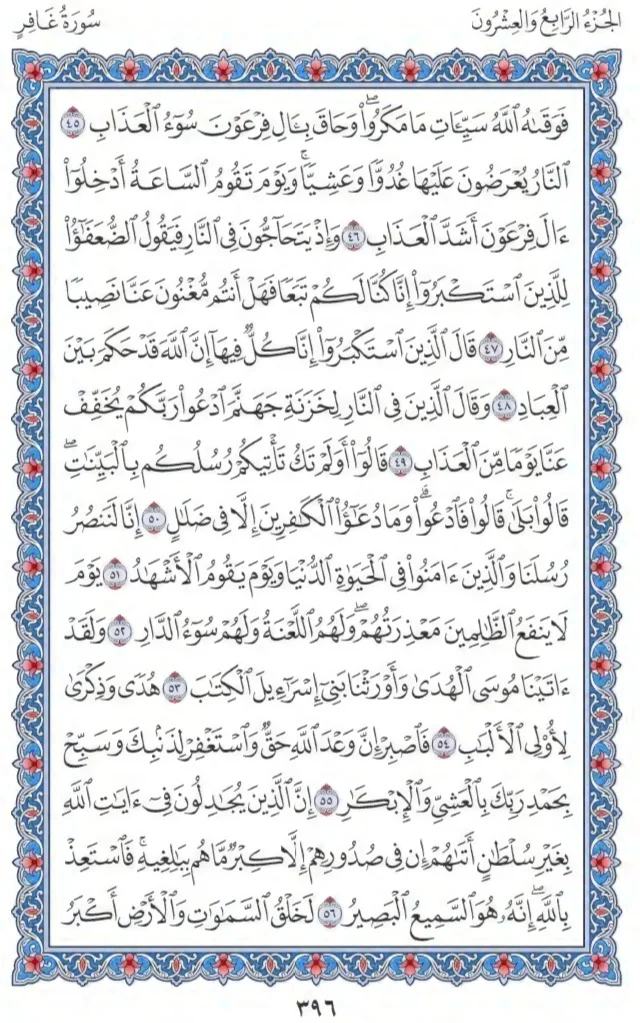 الجُزْءُ الرَّابِعُ وَالعِشْرُونَ
سُورَةُ غَافِرٍ
فَوَقَىٰهُ ٱللَّهُ سَيِّـَٔاتِ مَا مَكَرُوا۟ ۖ وَحَاقَ بِـَٔالِ فِرْعَوْنَ سُوٓءُ ٱلْعَذَابِ ٤٥
ٱلنَّارُ يُعْرَضُونَ عَلَيْهَا غُدُوًّا وَعَشِيًّا ۖ وَيَوْمَ تَقُومُ ٱلسَّاعَةُ أَدْخِلُوٓا۟
ءَالَ فِرْعَوْنَ أَشَدَّ ٱلْعَذَابِ ٤٦ وَإِذْ يَتَحَآجُّونَ فِى ٱلنَّارِ فَيَقُولُ ٱلضُّعَفَـٰٓؤُا۟
لِلَّذِينَ ٱسْتَكْبَرُوٓا۟ إِنَّا كُنَّا لَكُمْ تَبَعًا فَهَلْ أَنتُم مُّغْنُونَ عَنَّا نَصِيبًا
مِّنَ ٱلنَّارِ ٤٧ قَالَ ٱلَّذِينَ ٱسْتَكْبَرُوٓا۟ إِنَّا كُلٌّ فِيهَآ إِنَّ ٱللَّهَ قَدْ حَكَمَ بَيْنَ
ٱلْعِبَادِ ٤٨ وَقَالَ ٱلَّذِينَ فِى ٱلنَّارِ لِخَزَنَةِ جَهَنَّمَ ٱدْعُوا۟ رَبَّكُمْ يُخَفِّفْ
عَنَّا يَوْمًا مِّنَ ٱلْعَذَابِ ٤٩ قَالُوٓا۟ أَوَلَمْ تَكُ تَأْتِيكُمْ رُسُلُكُم بِٱلْبَيِّنَـٰتِ ۖ
قَالُوا۟ بَلَىٰ ۚ قَالُوا۟ فَٱدْعُوا۟ ۗ وَمَا دُعَـٰٓؤُا۟ ٱلْكَـٰفِرِينَ إِلَّا فِى ضَلَـٰلٍ ٥٠ إِنَّا لَنَنصُرُ
رُسُلَنَا وَٱلَّذِينَ ءَامَنُوا۟ فِى ٱلْحَيَوٰةِ ٱلدُّنْيَا وَيَوْمَ يَقُومُ ٱلْأَشْهَـٰدُ ٥١ يَوْمَ
لَا يَنفَعُ ٱلظَّـٰلِمِينَ مَعْذِرَتُهُمْ ۖ وَلَهُمُ ٱللَّعْنَةُ وَلَهُمْ سُوٓءُ ٱلدَّارِ ٥٢ وَلَقَدْ
ءَاتَيْنَا مُوسَى ٱلْهُدَىٰ وَأَوْرَثْنَا بَنِىٓ إِسْرَٰٓءِيلَ ٱلْكِتَـٰبَ ٥٣ هُدًى وَذِكْرَىٰ
لِأُو۟لِى ٱلْأَلْبَـٰبِ ٥٤ فَٱصْبِرْ إِنَّ وَعْدَ ٱللَّهِ حَقٌّ وَٱسْتَغْفِرْ لِذَنۢبِكَ وَسَبِّحْ
بِحَمْدِ رَبِّكَ بِٱلْعَشِىِّ وَٱلْإِبْكَـٰرِ ٥٥ إِنَّ ٱلَّذِينَ يُجَـٰدِلُونَ فِىٓ ءَايَـٰتِ ٱللَّهِ
بِغَيْرِ سُلْطَـٰنٍ أَتَىٰهُمْ ۙ إِن فِى صُدُورِهِمْ إِلَّا كِبْرٌ مَّا هُم بِبَـٰلِغِيهِ ۚ فَٱسْتَعِذْ
بِٱللَّهِ ۖ إِنَّهُۥ هُوَ ٱلسَّمِيعُ ٱلْبَصِيرُ ٥٦ لَخَلْقُ ٱلسَّمَـٰوَٰتِ وَٱلْأَرْضِ أَكْبَرُ
٣٩٦